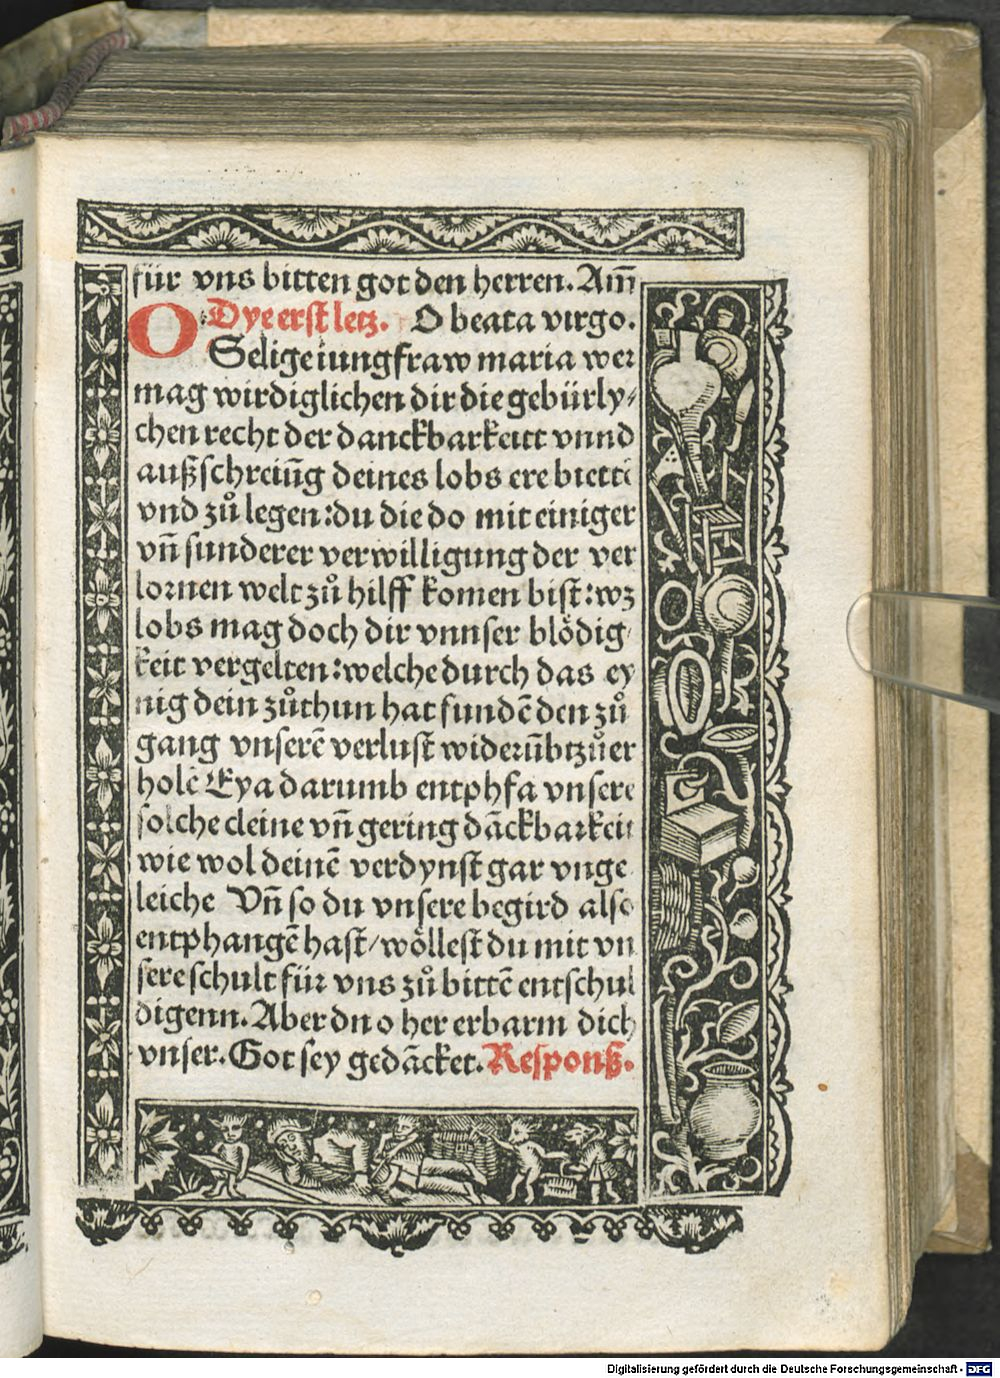 für vns bitten got den herren. Am̅
O Dye erst letz. O beata virgo.
Selige iungfraw maria wer
mag wirdiglichen dir die gebürly-
chen recht der danckbarkeitt vnnd
außschreiūg deines lobs ere biettē
vnd zů legen: du die do mit einiger
vn̄ sunderer verwilligung der ver
lornen welt zů hilff komen bist: wz
lobs mag doch dir vnnser blödig-
keit vergelten: welche durch das ey
nig dein zůthun hat fundē den zů
gang vnserē verlust widerūb tzů er
holē Eya darumb entphfa vnsere
solche cleine vn̄ gering dāckbarkeit
wie wol deinē verdynst gar vnge-
leiche Vn̄ so du vnsere begird also
entphangē hast/ wöllest du mit vn
sere schult für vns zů bittē entschul
digenn. Aber dn o her erbarm dich
vnser. Got sey gedācket. Responß.
Digitalisierung gefördert durch die Deutsche Forschungsgemeinschaft - DFG